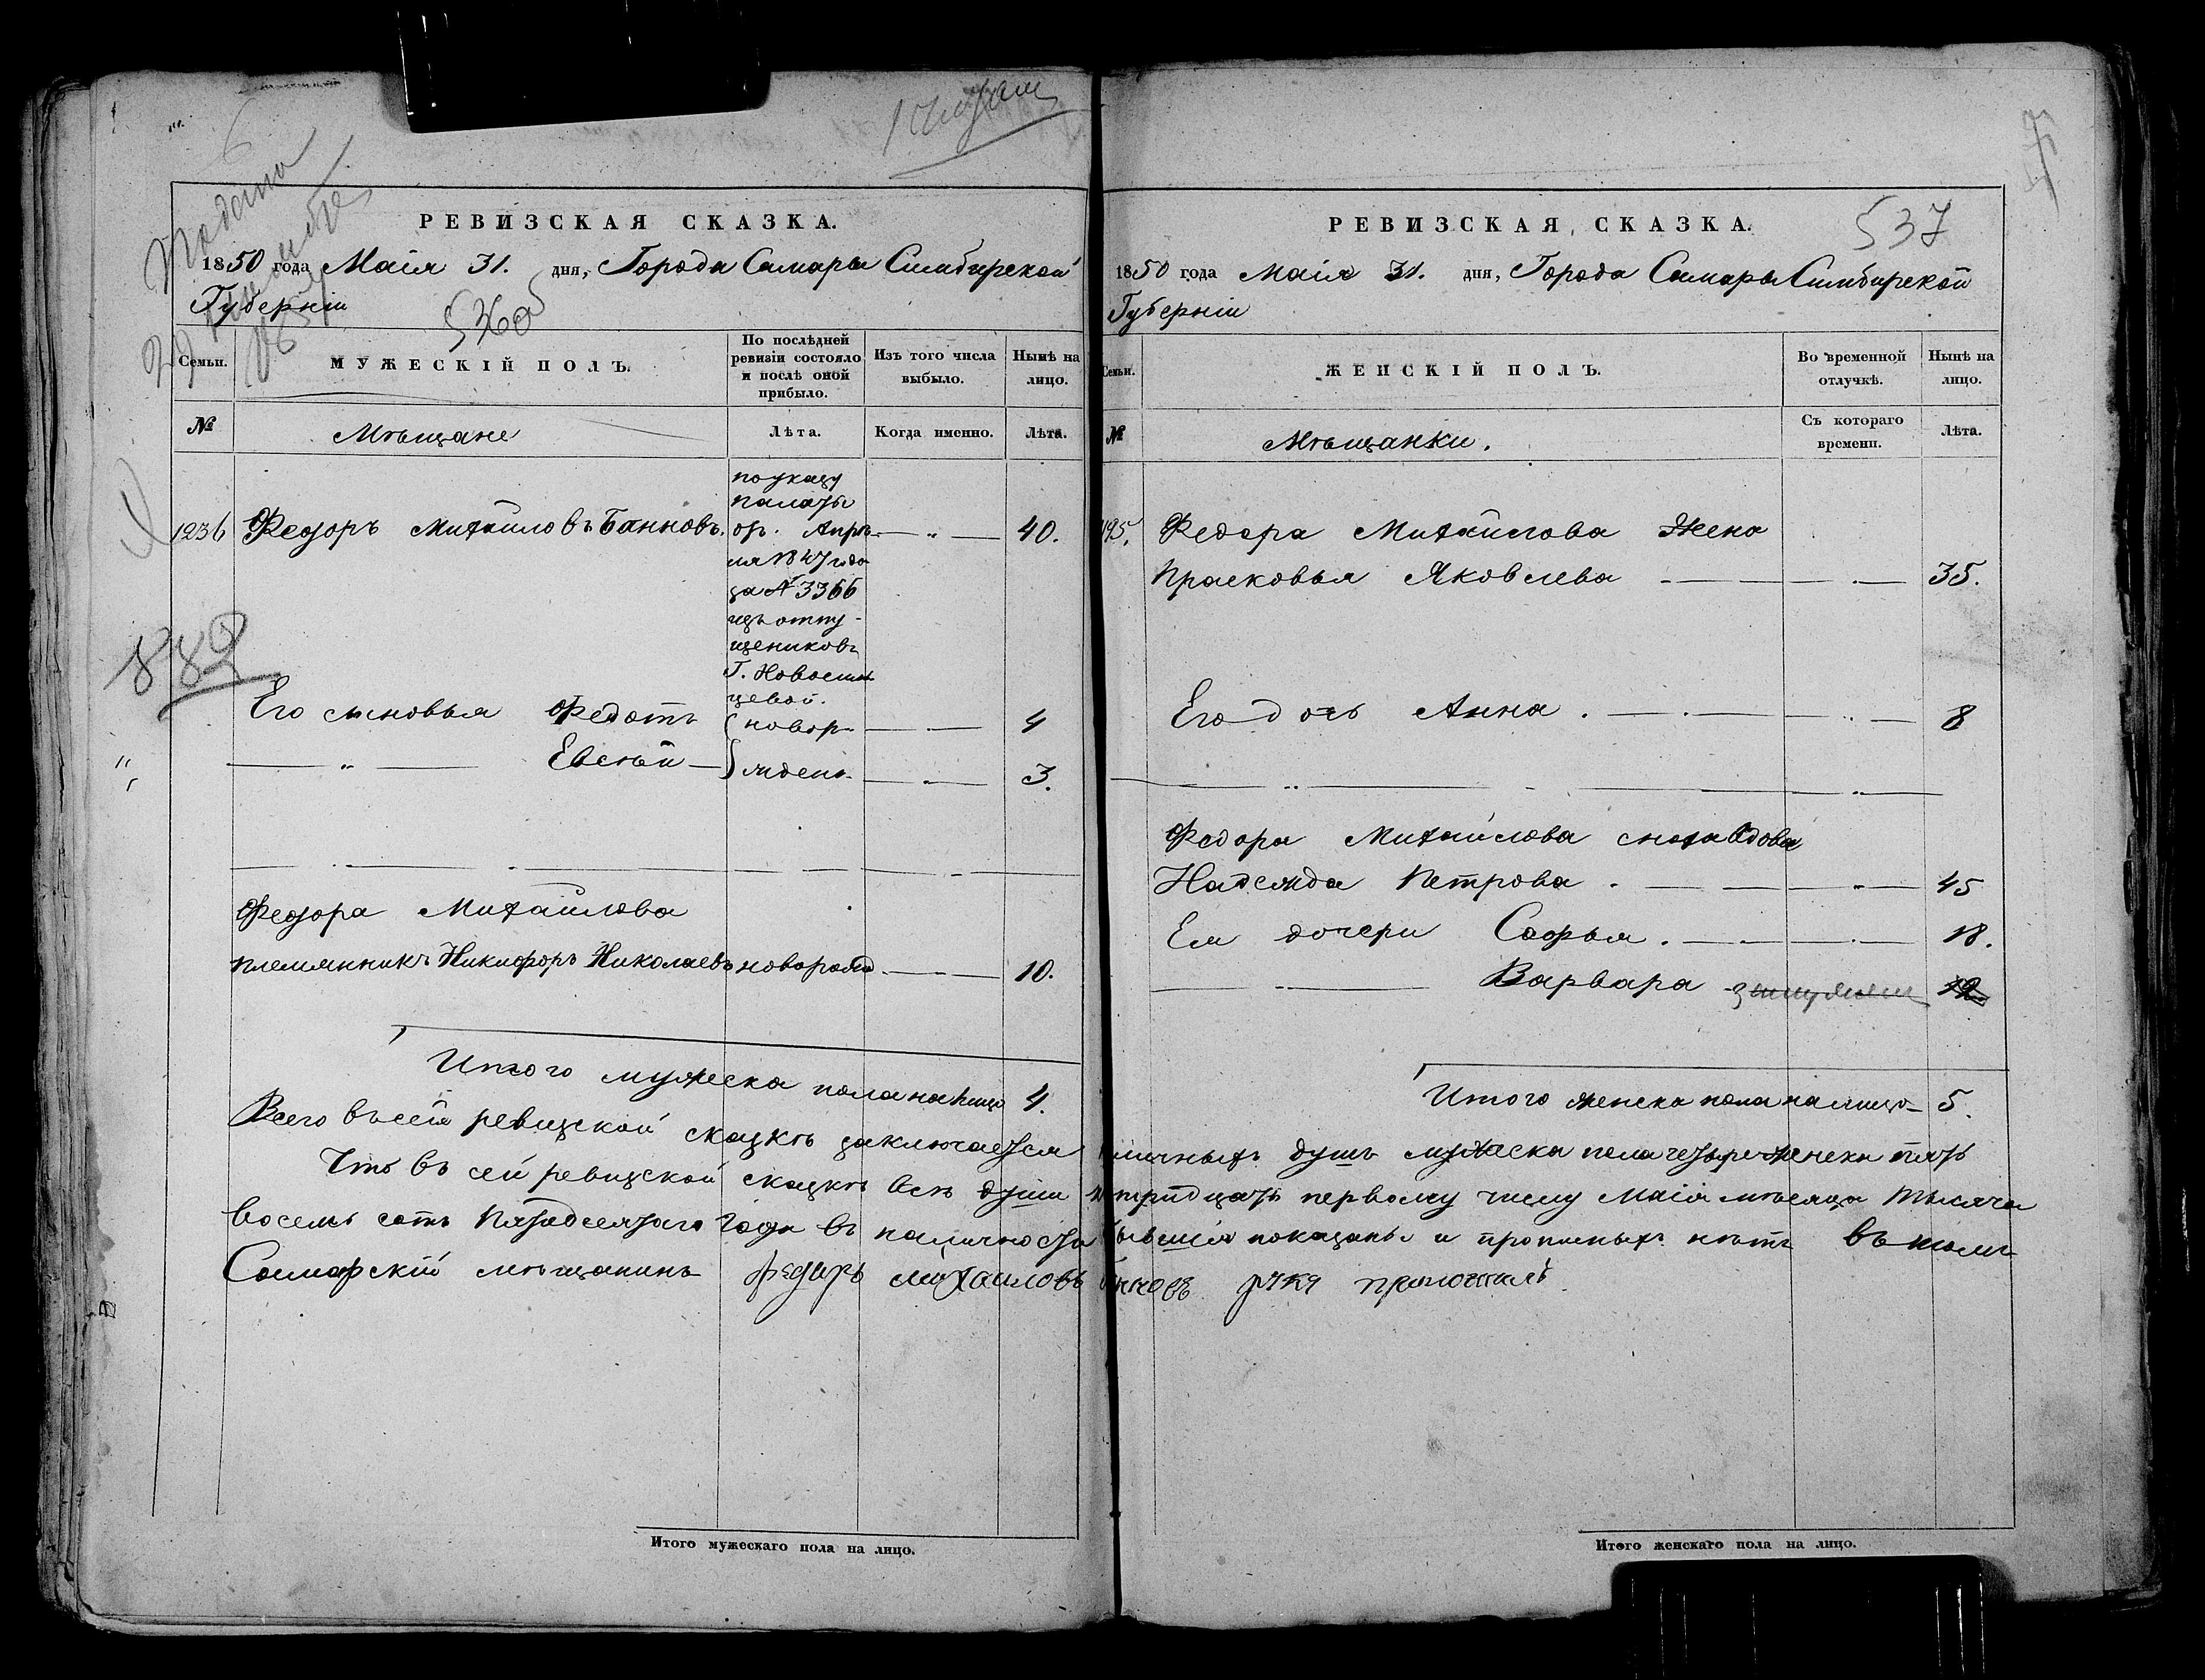 РЕВИЗСКАЯ СКАЗКА.
1850 года Маія 31. дня, Города Самары Симбирской
Губерніи
536 об
Семьи.
МУЖЕСКІЙ ПОЛЪ.
По послѣдней ревизіи состояло и послѣ оной прибыло.
Изъ того числа выбыло.
Нынѣ на лицо.
№
Мѣщане
Лѣта.
Когда именно.
Лѣта.
1236
889
Федоръ Михайловъ Банновъ.
по указу
палаты
отъ Апрѣ-
ля 1847 года
за № 3366
изъ отпу-
щениковъ
Г. Новосиль
цевой.
40.
Его сыновья Федотъ
новор-
4
Евсѣй
ждены
3.
Федора Михайлова
племянникъ Никифоръ Николаевъ новорожд 10.
Итого мужеска пола налицо 4.
РЕВИЗСКАЯ СКАЗКА.
537
1850 года Маія 31. дня, Города Самары Симбирской
Губерніи
Семьи.
ЖЕНСКІЙ ПОЛЪ.
Во временной отлучкѣ.
Нынѣ на лицо.
№
Мѣщанки.
Съ котораго времени.
Лѣта.
Федора Михайлова жена
Прасковья Яковлева 35.
Его дочь Анна 8
Федора Михайлова сноха вдова
Надежда Петрова 45
Ея дочери Софья 18.
Варвара
Итого женска пола налицо 5.
Всего въ сей ревизской сказкѣ заключается наличныхъ душъ мужеска пола четыре женска пять
Что въ сей ревизской сказкѣ всѣ души к тридцать первому числу Маія мѣсяца тысяча
восемь сотъ пятьдесятаго года въ наличности бывшія показаны и прописныхъ нѣтъ въ томъ
Самарскій мѣщанинъ Федоръ Михаиловъ Банновъ руку приложилъ
Итого мужескаго пола на лицо.
Итого женскаго пола на лицо.